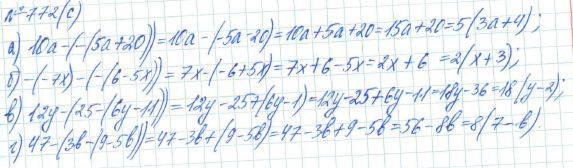 №772(с)
а) 10a-(-(5a+20))=10a-(-5a-20)=10a+5a+20=15a+20=5(3a+4);
б) -(-7x)-(-(6-5x))=7x-(-6+5x)=7x+6-5x=2x+6=2(x+3);
в) 12y-(25-(6y-11))=12y-25+(6y-1)=12y-25+6y-11=18y-36=18(y-2);
г) 47-(3b-(9-5b))=47-3b+(9-5b)=47-3b+9-5b=56-8b=8(7-b).